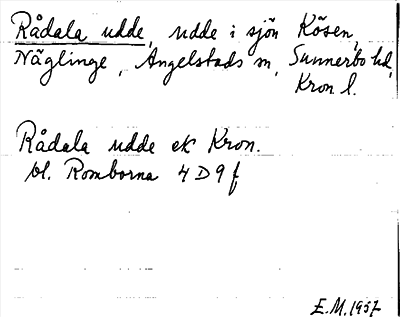 Rådala udde, udde i sjön Kösen,
Näglinge, Angelstads sn, Sunnerbo hd,
Kron l.
Rådala udde ek Kron.
bl. Romborna 4D9f
E.M. 1957